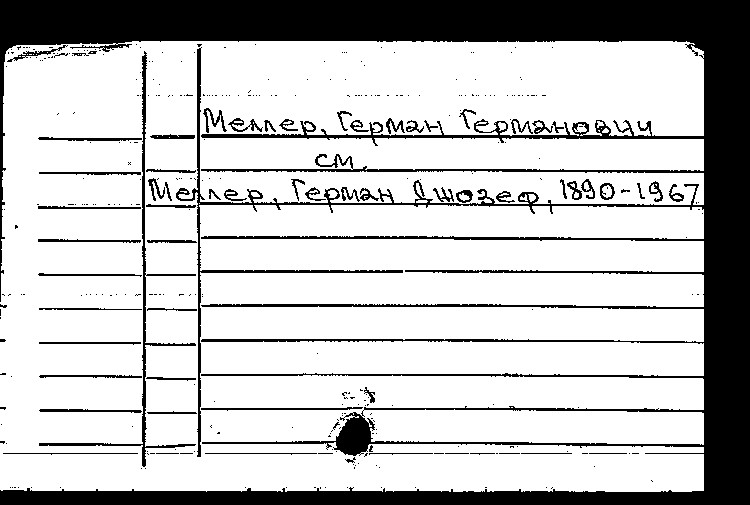 Меллер, Герман Германович
см.
Меллер, Герман Джозеф, 1890-1967